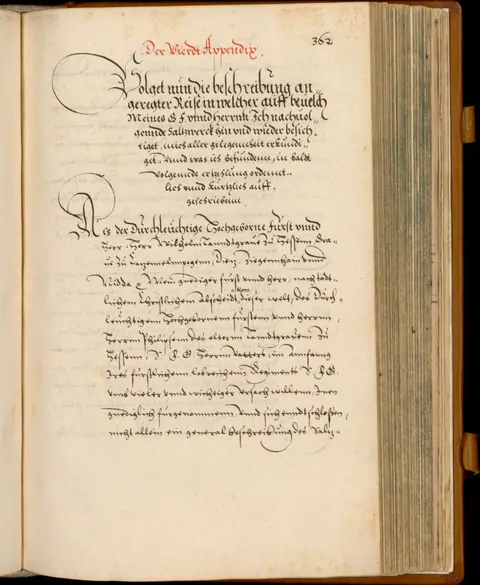 362
Der Vierdt Appendix.
Volget nun die beschreibung an-
geregter Reise in welcher auff beuelch
Meines G F vnnd Herrnn Ich nachuol-
gennde Saltzwerck hin vnd wieder besich-
tiget, mich aller gelegennheit erkundi-
get, Vnnd was ich befundenn, in bald
volgennde erzehlung ordennt-
lich vnnd kürtzlich auff-
geschriebenn.
Als der Durchleuchtige Hochgeborne Fürst vnnd
Herr, Herr Wilhelm Lanndtgraue Zu Hessenn, Gra-
ue Zu Catzennelnnpogenn, Dietz, Ziegennhain vnnd
Nidda, Mein gnediger fürst vnnd herr, nach tödt-
lichem Christlichem abscheidt dieser welt, des Durch-
leuchtigenn Hochgebornenn fürstenn vnnd herrnn,
Herrnn Philipsenn des eltern Lanndtgrauenn Zu
Hessenn, S. F. G. Herrnn vatters, im anfanng
Ires fürstlichenn lobreichenn Regiments S. F. G.
vmb vieler vnnd wichtiger vrsach willenn, Inen
gnediglich fürgenommenn vnnd sich enndtschlossen,
nicht allein ein general beschreibung des Saltz-